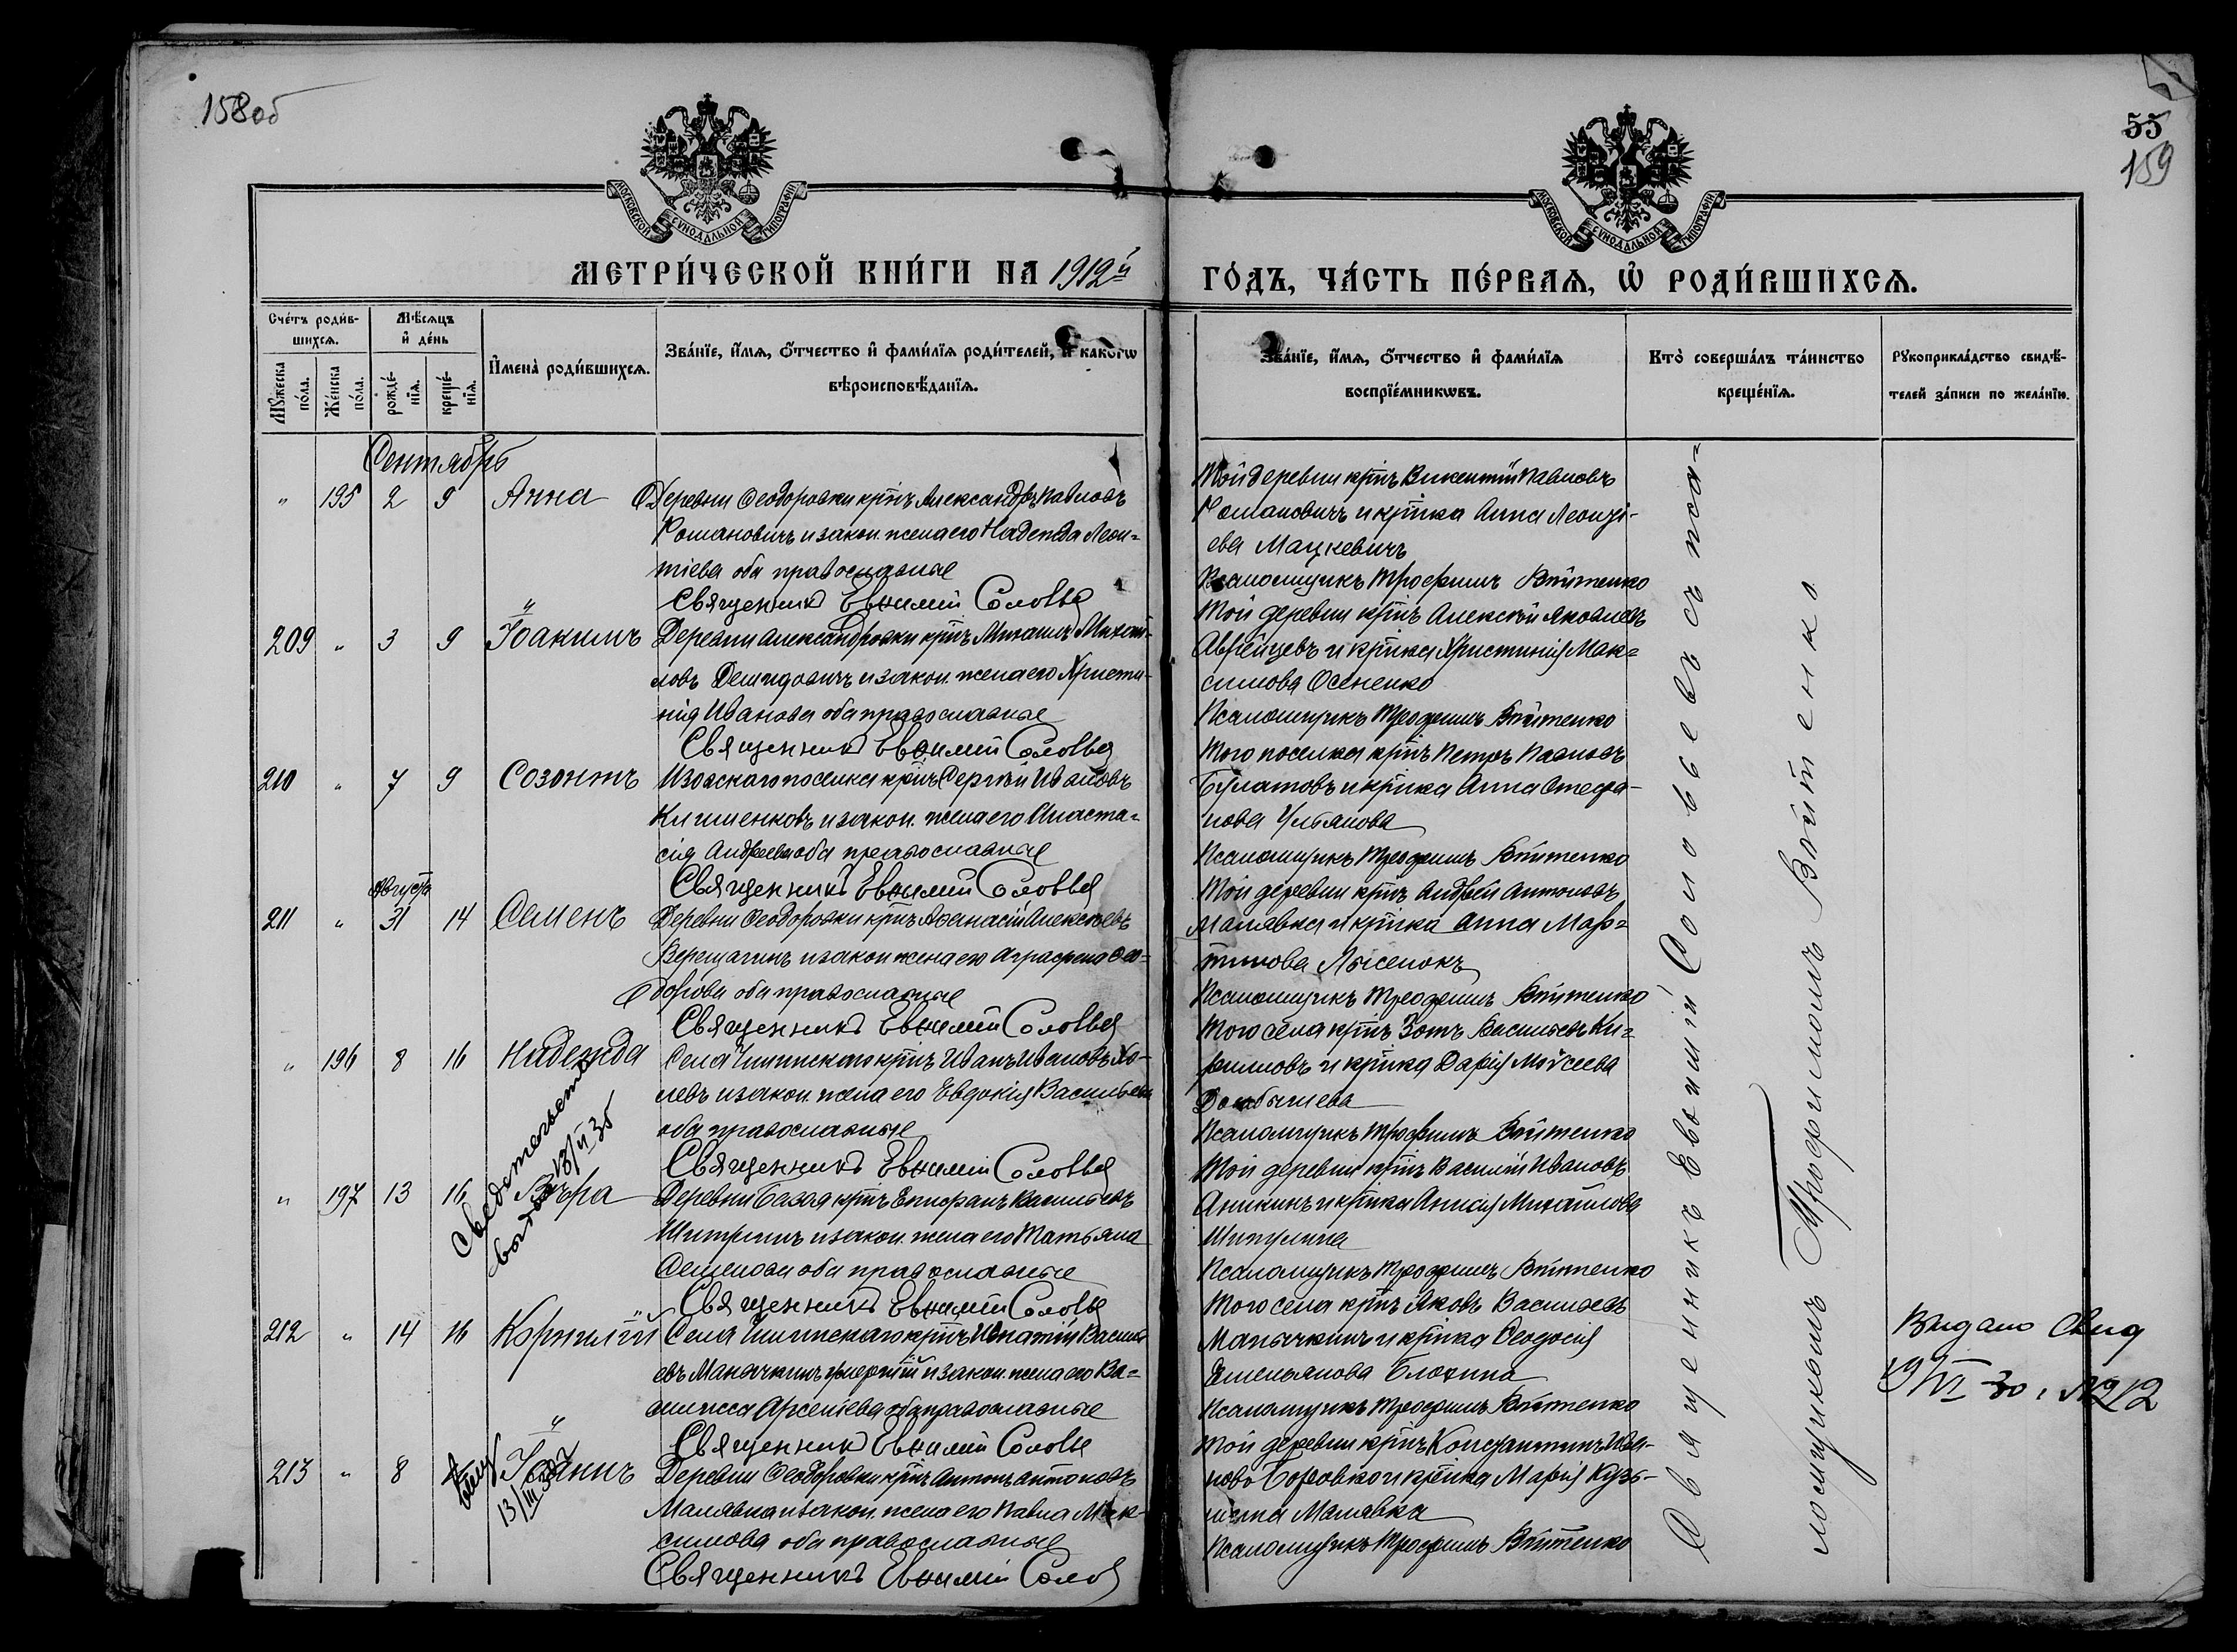 158об
55
159
МОСКОВСКОЙ СУНОДАЛЬНОЙ ТИПОГРАФІИ
МОСКОВСКОЙ СУНОДАЛЬНОЙ ТИПОГРАФІИ
МЕТРИ́ЧЕСКОЙ КНИ́ГИ НА 1912й
ГО́ДЪ, ЧА́СТЬ ПЕ́РВАѦ, Ѡ҆ РОДИ́ВШИХСѦ.
Сче́тъ роди́в-
шихсѧ.
Мꙋ́жеска по́ла.
Же́нска по́ла.
Мѣ́сѧцъ
и҆ де́нь
рожде́-
нїѧ.
креще́-
нїѧ.
И҆мена̀ роди́вшихсѧ.
Зва́нїе, и҆́мѧ, ѻ҆́тчество и҆ фами́лїѧ роди́телей, и҆ како́гѡ
вѣроисповѣ́данїѧ.
Зва́нїе, и҆́мѧ, ѻ҆́тчество и҆ фами́лїѧ
воспрїе́мникѡвъ.
Кто̀ соверша́лъ та́инство
креще́нїѧ.
Рꙋкоприкла́дство свидѣ́-
телей за́писи по жела́нїю.
Сентябрь
" 195 2 9 Анна
Деревни Ѳеодоровки крнъ Александръ Павловъ
Романовичъ и закон. жена его Надежда Леон-
тіева оба православные
Священникъ Евѳимій Соловье
Той деревни крнъ Викентій Павловъ
Романовичъ и крнка Анна Леонті-
ева Мацкевичъ
Псаломщикъ Трофимъ Войтенко
209 " 3 9 Іоакимъ
Деревни Александровки крнъ Михаилъ Михай-
ловъ Демидовичъ и закон. жена его Христи-
нія Иванова оба православные
Священникъ Евѳимій Соловье
Той деревни крнъ Алексѣй Яковлевъ
Авдейцевъ и крнка Христинія Мак-
симова Осененко
Псаломщикъ Трофимъ Войтенко
210 " 7 9 Созонтъ
Изовскаго поселка крнъ Сергѣй Ивановъ
Кишенковъ и закон. жена его Анаста-
сія Андреева оба православные
Священникъ Евѳимій Соловье
Того поселка крнъ Петръ Павловъ
Булатовъ и крнка Анна Стефа-
нова Ульянова
Псаломщикъ Трофимъ Войтенко
Августъ
211 " 31 14 Семенъ
Деревни Ѳеодоровки крнъ Аѳанасій Алексѣевъ
Верещагинъ и закон жена его Аграфена Ѳео-
дорова оба православные
Священникъ Евѳимій Соловье
Той деревни крнъ Андрей Антоновъ
Малявка и крнка Анна Мар-
тинова Лысенокъ
Псаломщикъ Трофимъ Войтенко
" 196 8 16 Надежда
Села крнъ Иванъ Ивановъ Хо-
левъ и закон. жена его Евдокія Васильева
оба православные
Священникъ Евѳимій Соловье
Того села крнъ Зотъ Васильевъ Ки-
риловъ и крнка Дарія Моѵсеева
Псаломщикъ Трофимъ Войтенко
Свидетельство
" 197 13 16 Вѣра
Деревни База крнъ Епифанъ Васильевъ
и закон. жена его Татьяна
Семенова оба православные
Священникъ Евѳимій Соловье
Той деревни крнъ Василій Ивановъ
Аникинъ и крнка Анисія Михайлова
Шипулина
Псаломщикъ Трофимъ Войтенко
212 " 14 16 Корнилій
Села крнъ Игнатій Василь
евъ Манычкинъ умершій и закон. жена его Ва-
силисса Арсеніева оба православные
Священникъ Евѳимій Соловье
Того села крнъ Яковъ Васильевъ
Манычкинъ и крнка Ѳеодосія
Емельянова Блохина
Псаломщикъ Трофимъ Войтенко
Выдано Свид
19/VI 30 г №212
213 " 8 Іоаннъ
13/III
Деревни Ѳеодоровки крнъ Антонъ Антоновъ
Малявка и закон. жена его Павла Мак-
симова оба православные
Священникъ Евѳимій Солов
Той деревни крнъ Константинъ Ива-
новъ и крнка Марія Кузь-
мина Малявка
Псаломщикъ Трофимъ Войтенко
Священникъ Евѳимій Соловьевъ съ пса-
ломщикомъ Трофимомъ Войтенко